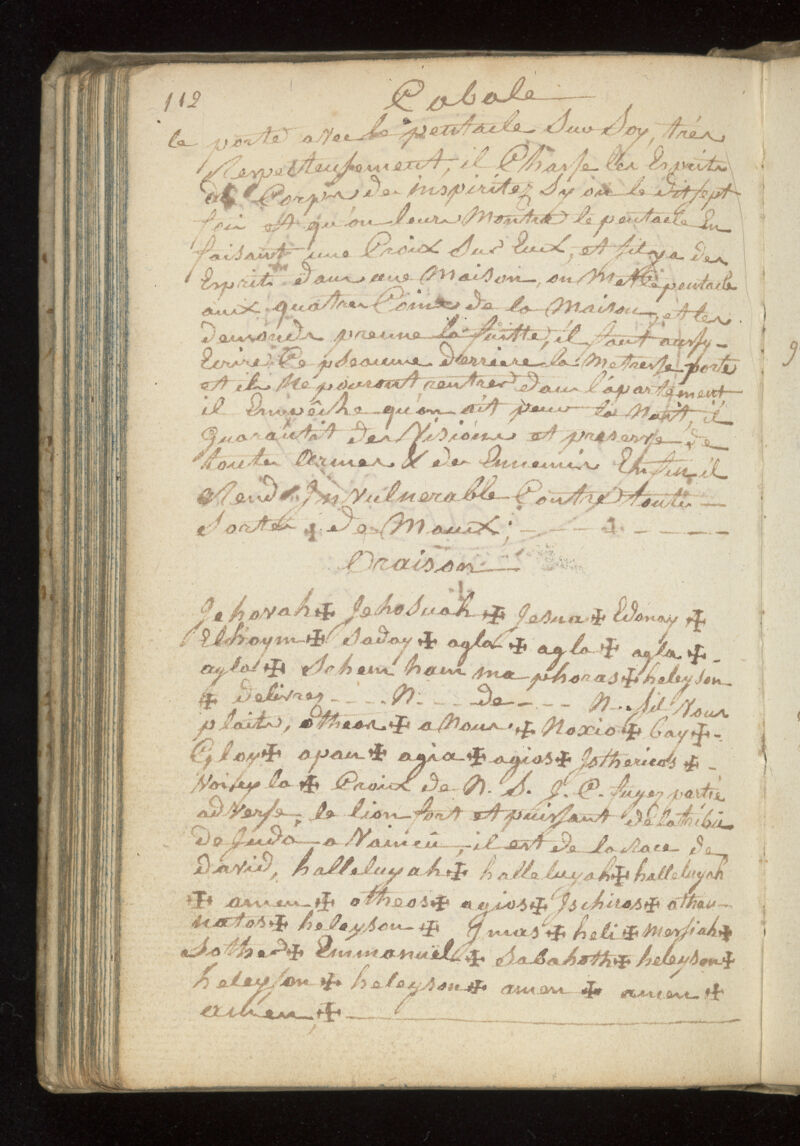 112 Cabale
le porte avec le pentacle Sur Soy, trés
Respecteusement, il Chasse les Esprits
des Corps des inspiritez Sy on le dit sept
fois et qu'on leurs Montre le pentacle En
faisant une Croix Sur Eux, et sil ya des
Esprits dans une Maison, on Met le pentacle
aux quatres Coins de la Maison, et les
demonds prenne la fuitte, il faut aussy
Ecrire Ce pseaume derriere la Metresse porte
et ils Ne pouront rentrer dans l'apartement
il Empêche qu'on ait peur la Nuit, il
guarantit des Visions et preserve de
toutes armes & des Ennemis Enfin il
Rend Jnvulnerable Contre toute
Sortes de Maux; - - - - - - -
Oraison
Jehovah ✠ Jehosuah ✠ Jesua ✠ Edonay ✠
Elhoym ✠ Saday ✠ agla ✠ agla ✠ agla ✠ -
agla ✠ Schem ham ma phoras ✠ heleyson
✠ delivrez - - - . N. - - - de - - - - N. sil Vous
plait, otheos ✠ a Nous ✠ Noxio ✠ Cay ✠ -
Gloy ✠ apan ✠ agia ✠ agios ✠ Jothericos ✠ -
Voicy la ✠ Croix de N. S. J. C. fuyez partie
adverse, le lion fort et puissant de la tribu
de Juda a Vaincû, il est de la Race de
david, halleluyah ✠ halleluyah ✠ halleluyah
✠ amen ✠ otheos ✠ agios ✠ Jschiros ✠ athan-
natos ✠ heleyson ✠ Ymas ✠ heli ✠ Messiah ✠
Sother ✠ Emmanuel ✠ Sabahoth ✠ heleyson ✠
heleyson ✠ heleyson ✠ amen ✠ amen ✠
amen, ✠